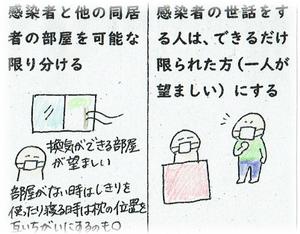 感染者と他の同居
者の部屋を可能な
限り分ける
換気ができる部屋
が望ましい
部屋がない時はしきりを
使ったり寝る時は枕の位置を
互いちがいにするのも○
感染者の世話をす
る人は、できるだけ
限られた方（一人が
望ましい）にする